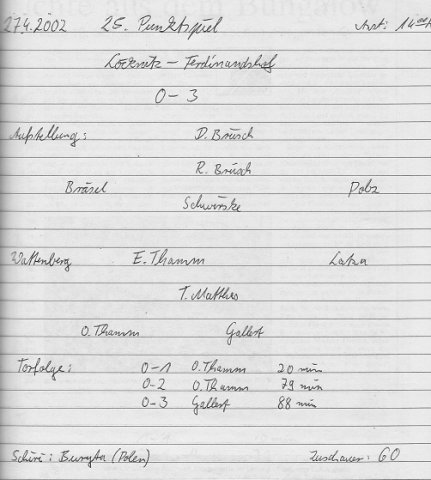 27.4.2002 25. Punktspiel Anst: 14 00 h
Löcknitz – Ferdinandshof
0 – 3
Aufstellung: D. Brüsch
R. Brüsch
Bräsel Pobz
Schwirske
Wattenberg E. Thamm Laka
T. Matthes
O. Thamm Gallert
Torfolge: 0-1 O. Thamm 20 min
0-2 O. Thamm 79 min
0-3 Gallert 88 min
Schiri: (Polen) Zuschauer: 60